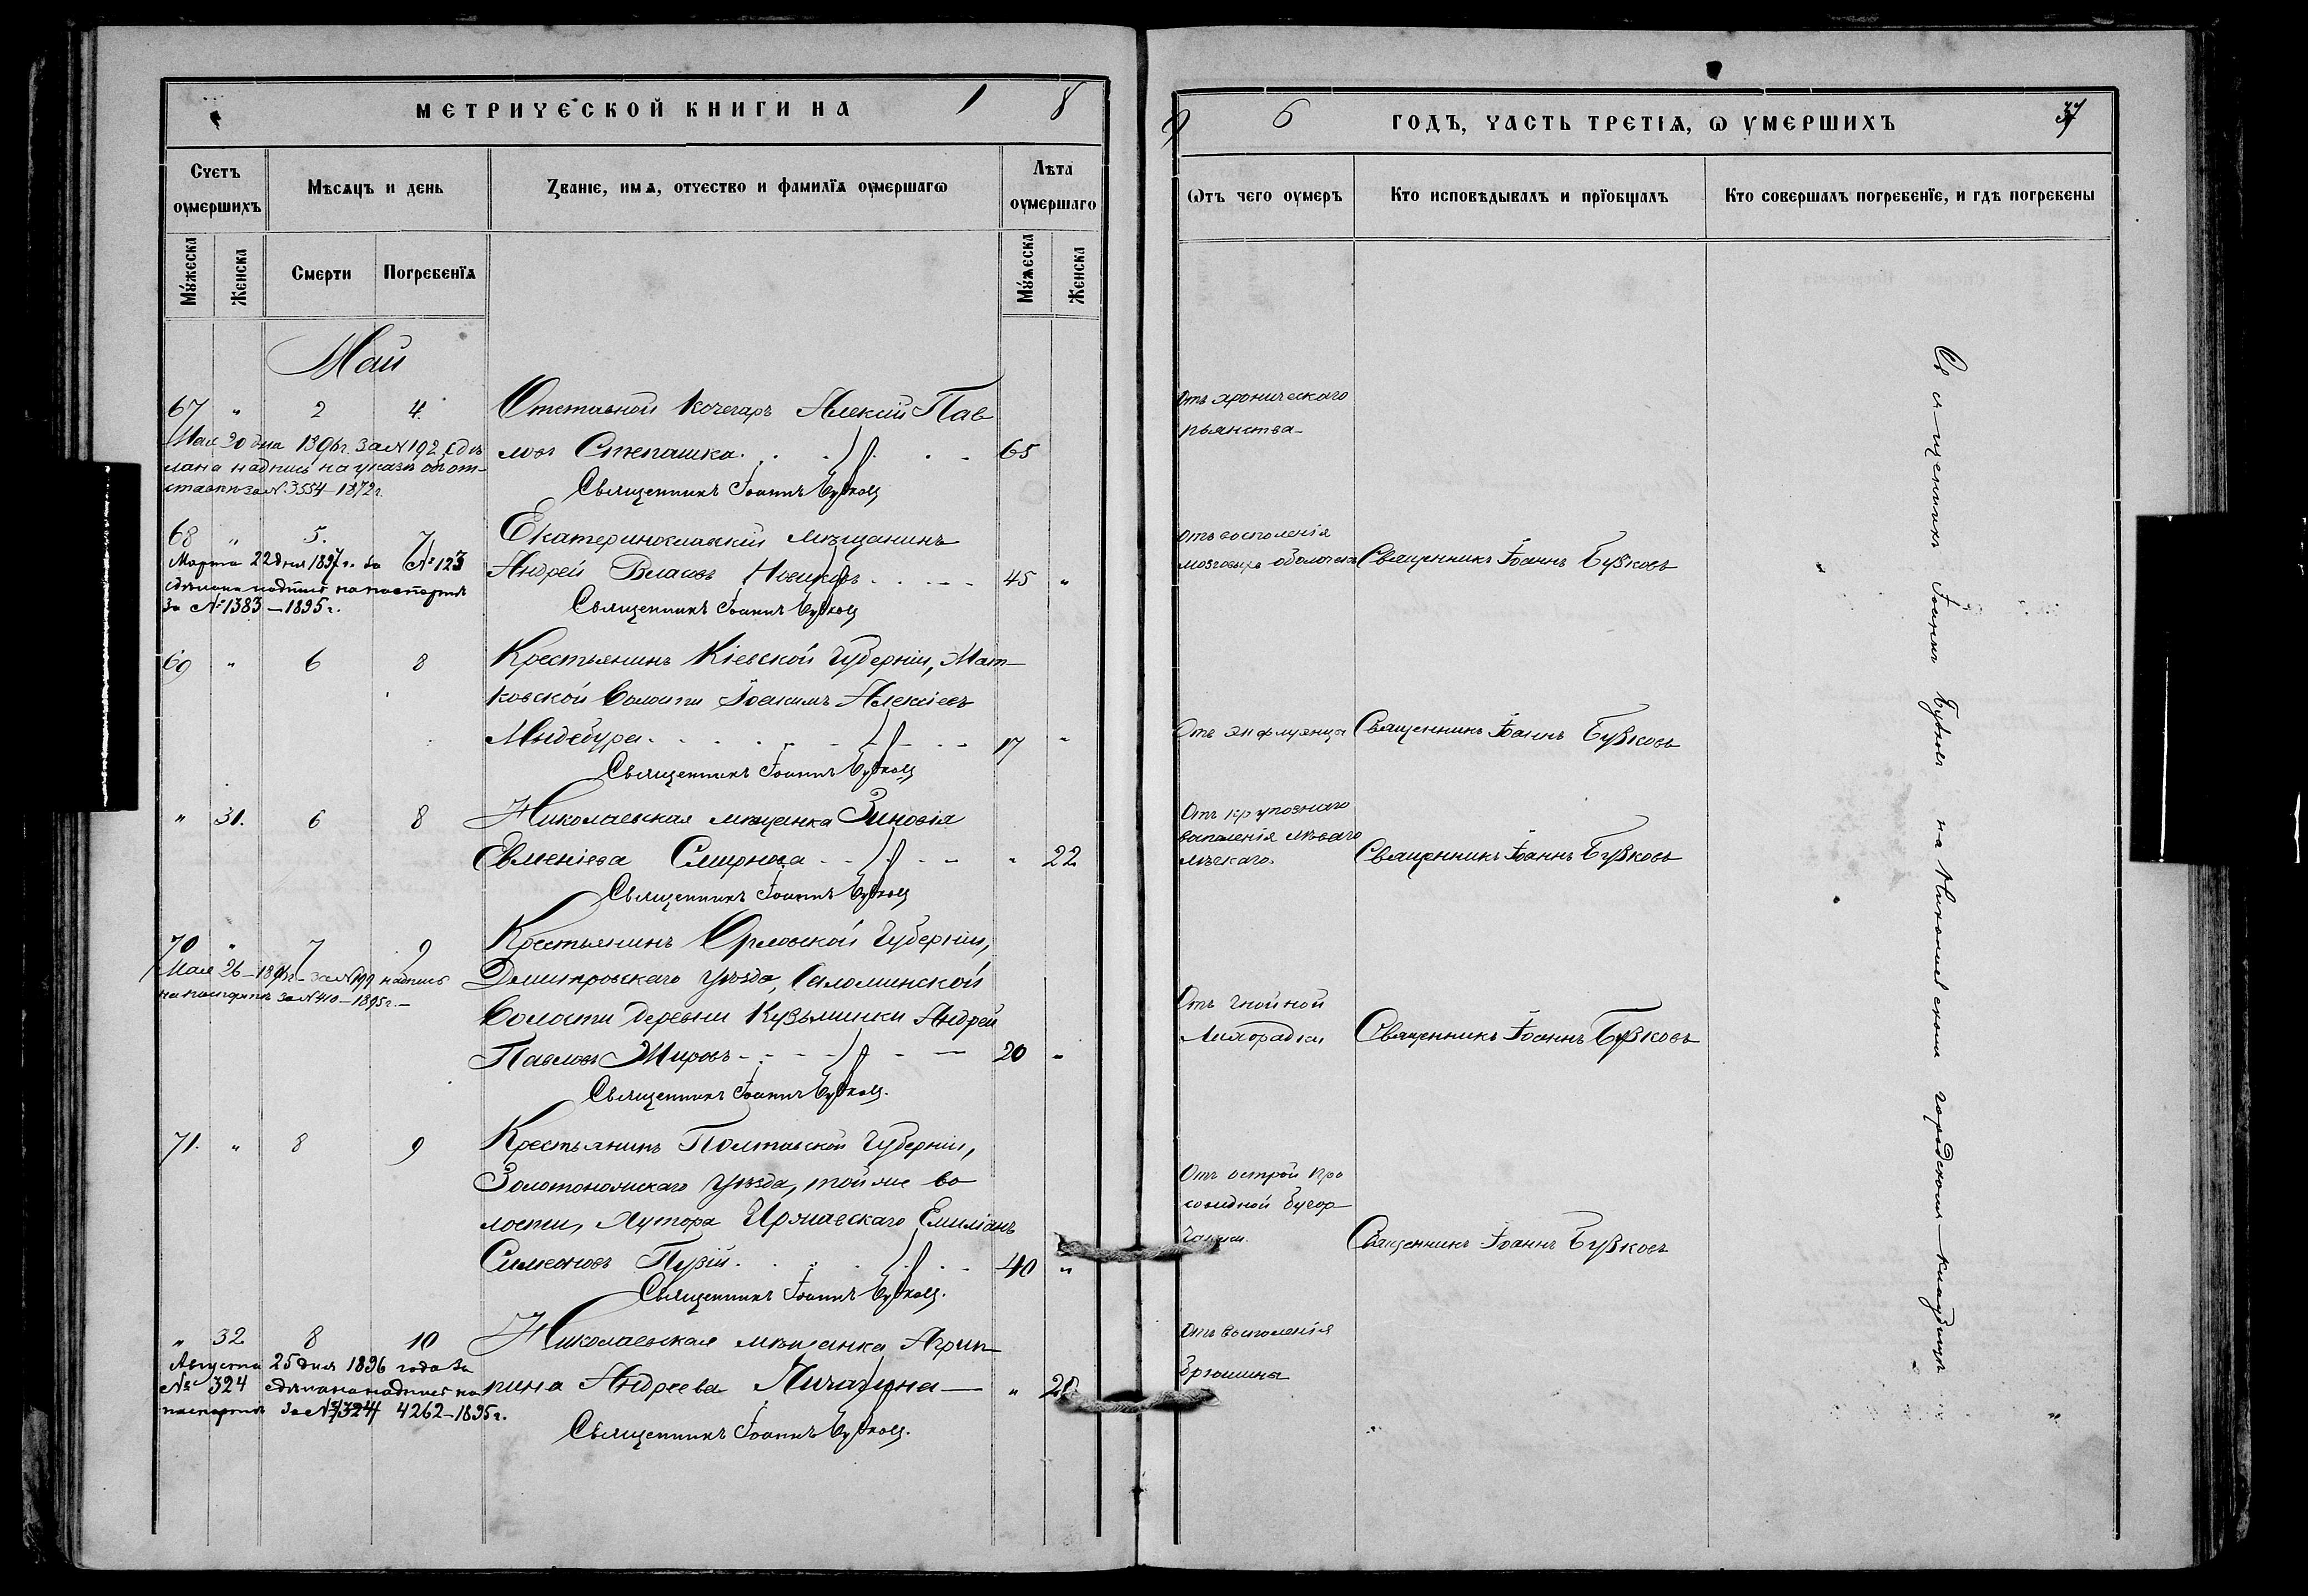 МЕТРИЧЕСКОЙ КНИГИ НА 1 8
Счетъ оумершихъ
Мѣсяцъ и день
Званіе, имя, отчество и фамилія оумершагѡ
Лѣта оумершаго
Мужеска
Женска
Смерти
Погребенїя
Мужеска
Женска
Май
67 " 2 4.
Отставной Кочегаръ Алексій Пав
ловъ Степашка. 65
Мая 20 дня 1896 г. за № 192 сдѣ
лана надпись на указѣ объ от-
ставкѣ за № 3554 - 1872 г.
Священникъ Іоаннъ Бузковъ
68 " 5. 7
Екатеринославскій мѣщанинъ
Андрей Власовъ Новиковъ 45 "
Марта 22 дня 1897 г. за № 123
сдѣлана надпись на паспортѣ
за № 1383 - 1895 г.
Священникъ Іоаннъ Бузковъ
69 " 6 8
Крестьянинъ Кіевской Губерніи, Мат-
ковской Волости Іоакимъ Алексіевъ
17 "
Священникъ Іоаннъ Бузковъ
" 31. 6 8
Николаевская мѣщанка Зиновія
Евменіева Смирнова " 22
Священникъ Іоаннъ Бузковъ
70 " 7 9
Крестьянинъ Орловской Губерніи,
Дмитровскаго уѣзда, Саломинской
Волости деревни Кузьминки Андрей
Павловъ Жировъ 20 "
Мая 26 - 1896 г. за № 199 надпись
на паспортѣ за № 410 - 1895 г. -
Священникъ Іоаннъ Бузковъ.
71. " 8 9
Крестьянинъ Полтавской Губерніи,
Золотоношскаго уѣзда, той же во
лости, Хутора Емиліанъ
Симеоновъ 40 "
Священникъ Іоаннъ Бузковъ.
" 32 8 10
Николаевская мѣщанка Агрип-
пина Андреева "
Августа 25 дня 1896 года за
№ 324 сдѣлана надпись на
паспортѣ за № 4262 - 1895 г.
Священникъ Іоаннъ Бузковъ.
9 6 ГОДЪ, ЧАСТЬ ТРЕТІЯ, Ѡ УМЕРШИХЪ 37
Ѡтъ чего оумеръ
Кто исповѣдывалъ и прїобщалъ
Кто совершалъ погребенїе, и гдѣ погребены
Отъ хроническаго
пьянства
Отъ воспаленія
мозговыхъ оболочекъ Священникъ Іоаннъ Бузковъ
Отъ инфлуэнцы Священникъ Іоаннъ Бузковъ
Отъ крупознаго
воспаленія лѣваго
легкаго. Священникъ Іоаннъ Бузковъ
Отъ гнойной
Лихорадки Священникъ Іоаннъ Бузковъ
Отъ острой про
совидной бугор-
чатки. Священникъ Іоаннъ Бузковъ
Отъ воспаленія
брюшины
Священникъ Іоаннъ Бузковъ на Николаевскомъ городскомъ кладбищѣ